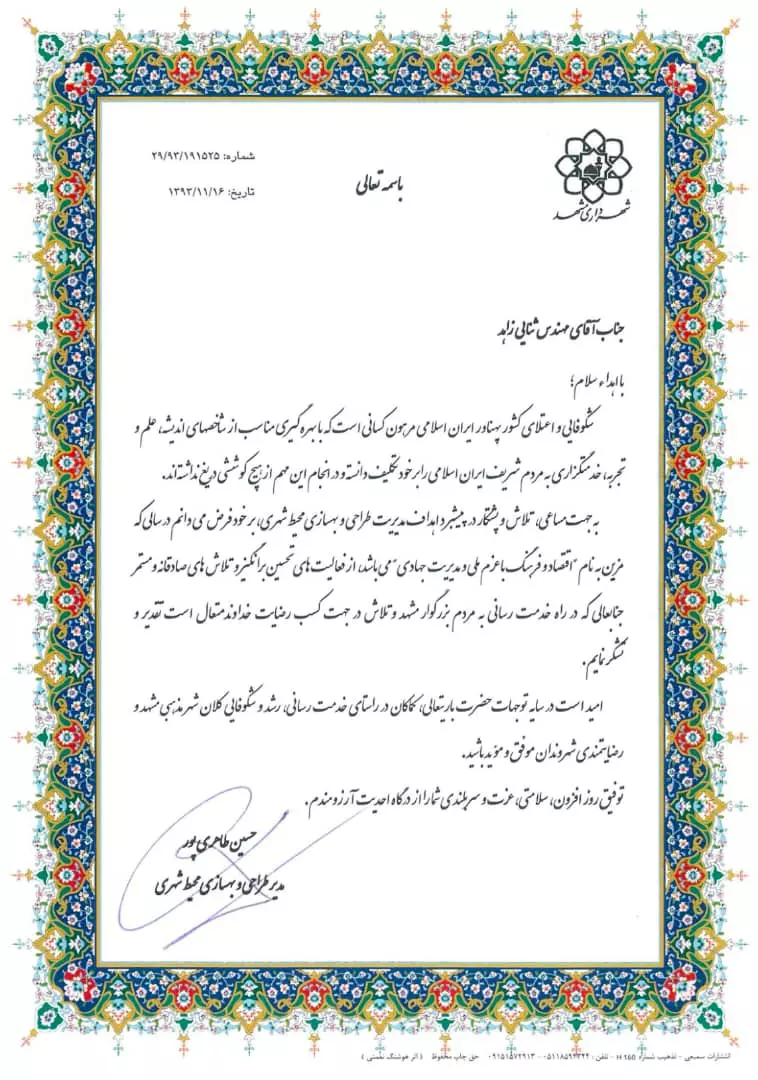 شماره: ۲۹/۹۳/۱۹۱۵۲۵
باسمه تعالی
تاریخ: ۱۳۹۳/۱۱/۱۶
شهرداری مشهد
جناب آقای مهندس ثنایی زاهد
با اهداء سلام؛
شکوفایی و اعتلای کشور پهناور ایران اسلامی مرهون کسانی است که با بهره گیری مناسب از شاخصهای اندیشه، علم و
تجربه، خدمتگزاری به مردم شریف ایران اسلامی را بر خود تکلیف دانسته و در انجام این مهم از هیچ کوششی دریغ نداشته‌اند.
به جهت مساعی، تلاش و پشتکار در پیشبرد اهداف مدیریت طراحی و بهسازی محیط شهری، بر خود فرض می دانم در سالی که
مزین به نام "اقتصاد و فرهنگ با عزم ملی و مدیریت جهادی" می باشد، از فعالیت های تحسین برانگیز و تلاش های صادقانه و مستمر
جنابعالی که در راه خدمت رسانی به مردم بزرگوار مشهد و تلاش در جهت کسب رضایت خداوند متعال است تقدیر و
تشکر نمایم.
امید است در سایه توجهات حضرت باریتعالی، کماکان در راستای خدمت رسانی، رشد و شکوفایی کلان شهر مذهبی مشهد و
رضایتمندی شهروندان موفق و مؤید باشید.
توفیق روز افزون، سلامتی، عزت و سربلندی شما را از درگاه احدیت آرزومندم.
حسین طاهری پور
مدیر طراحی و بهسازی محیط شهری
انتشارات سمیعی - تذهیب شماره H 255 - تلفن: ۰۵۱۱۸۵۹۳۳۲۴ - ۰۹۱۵۱۵۷۲۹۱۳ حق چاپ محفوظ ( اثر هوشنگ نعمتی )